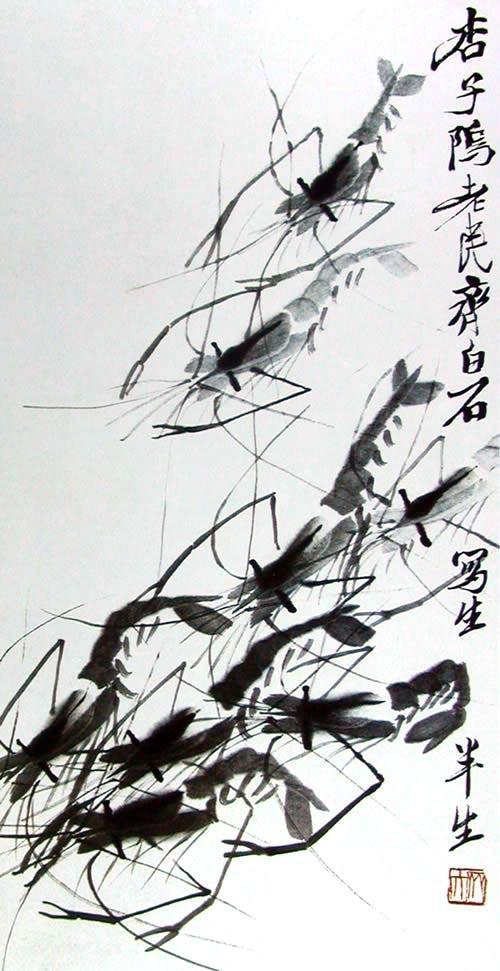 杏子隖老民齊白石 寫生 半生